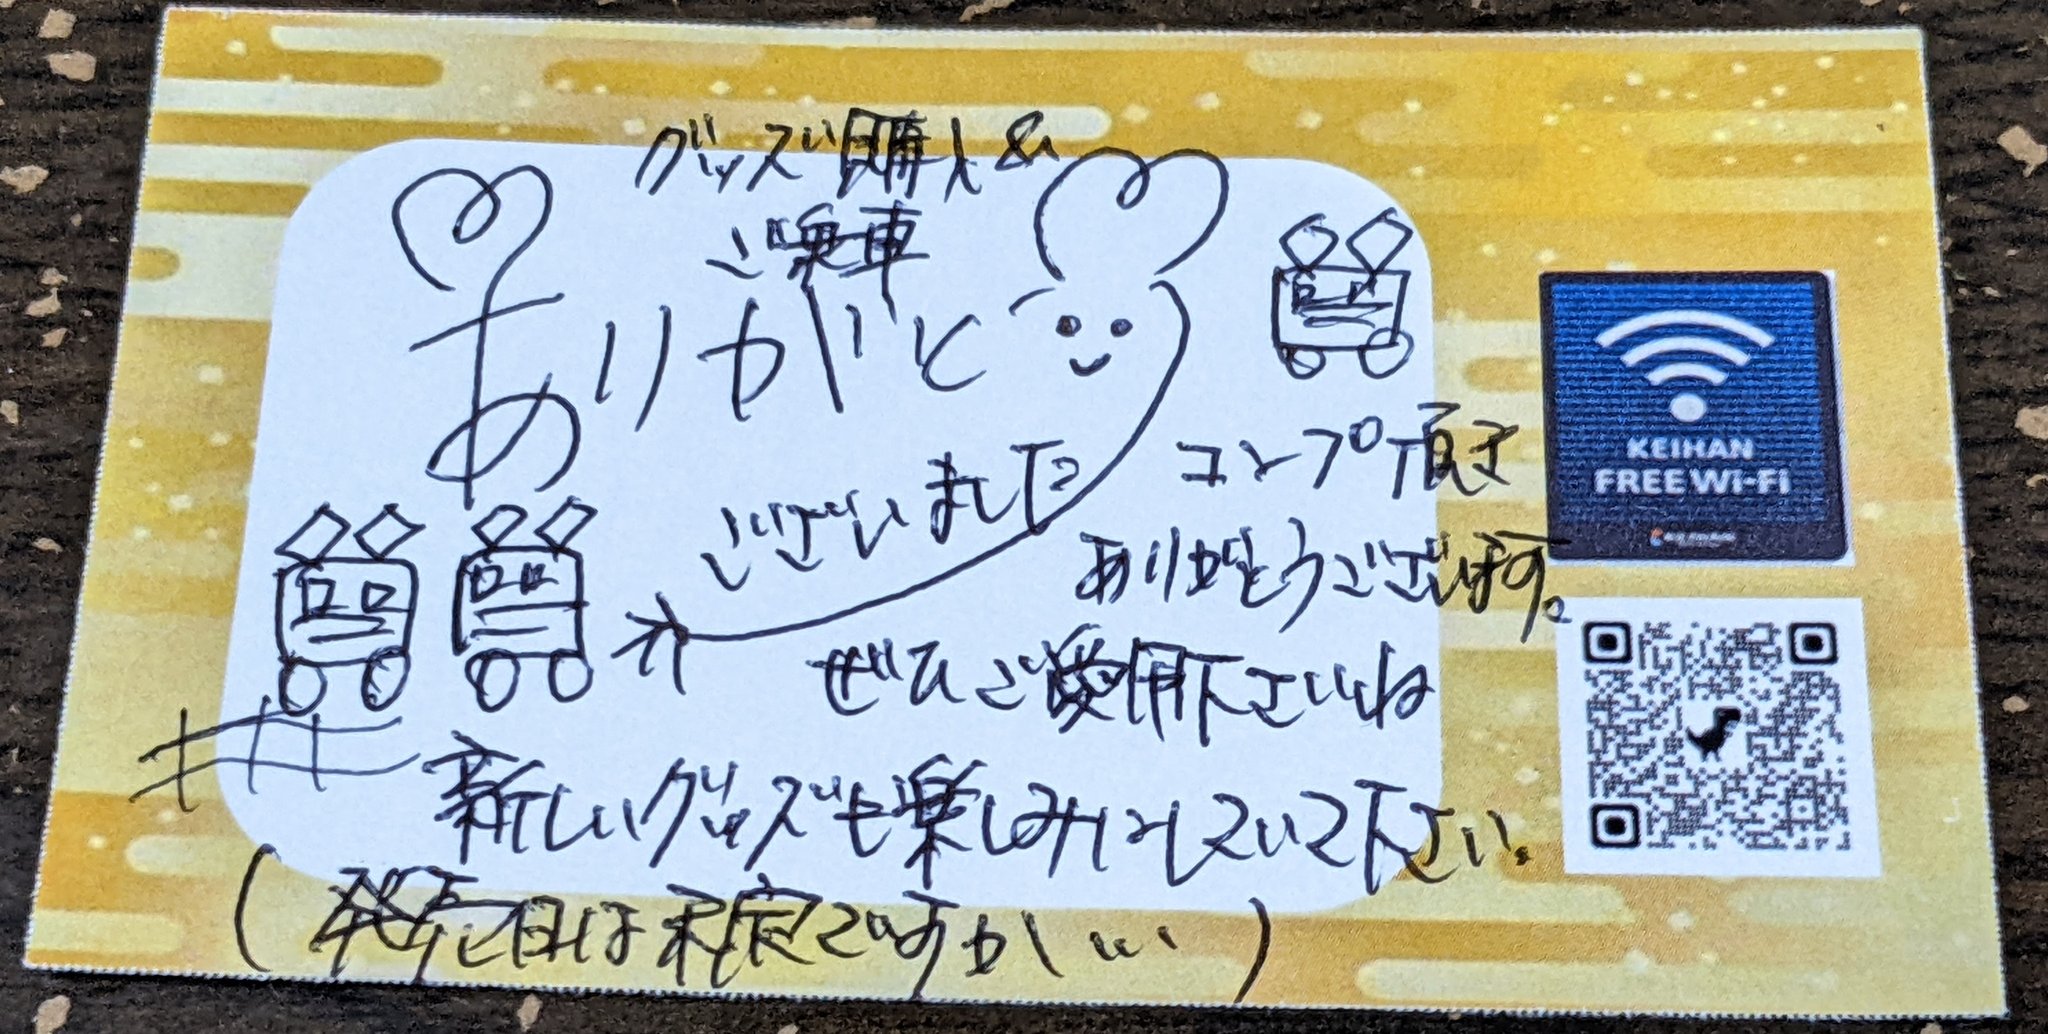 グッズ購入&
ご乗車
ありがとう
ございました
コンプ頂き
ありがとうございます。
ぜひご愛用下さいね
新しいグッズも楽しみにしていて下さい。
(発売日は未定ですが…)
KEIHAN
FREE Wi-Fi